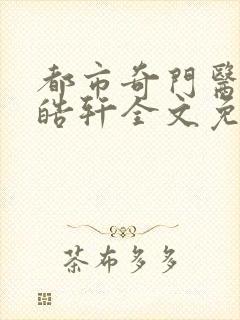 都市奇門醫
皓轩全文免
茶布多多